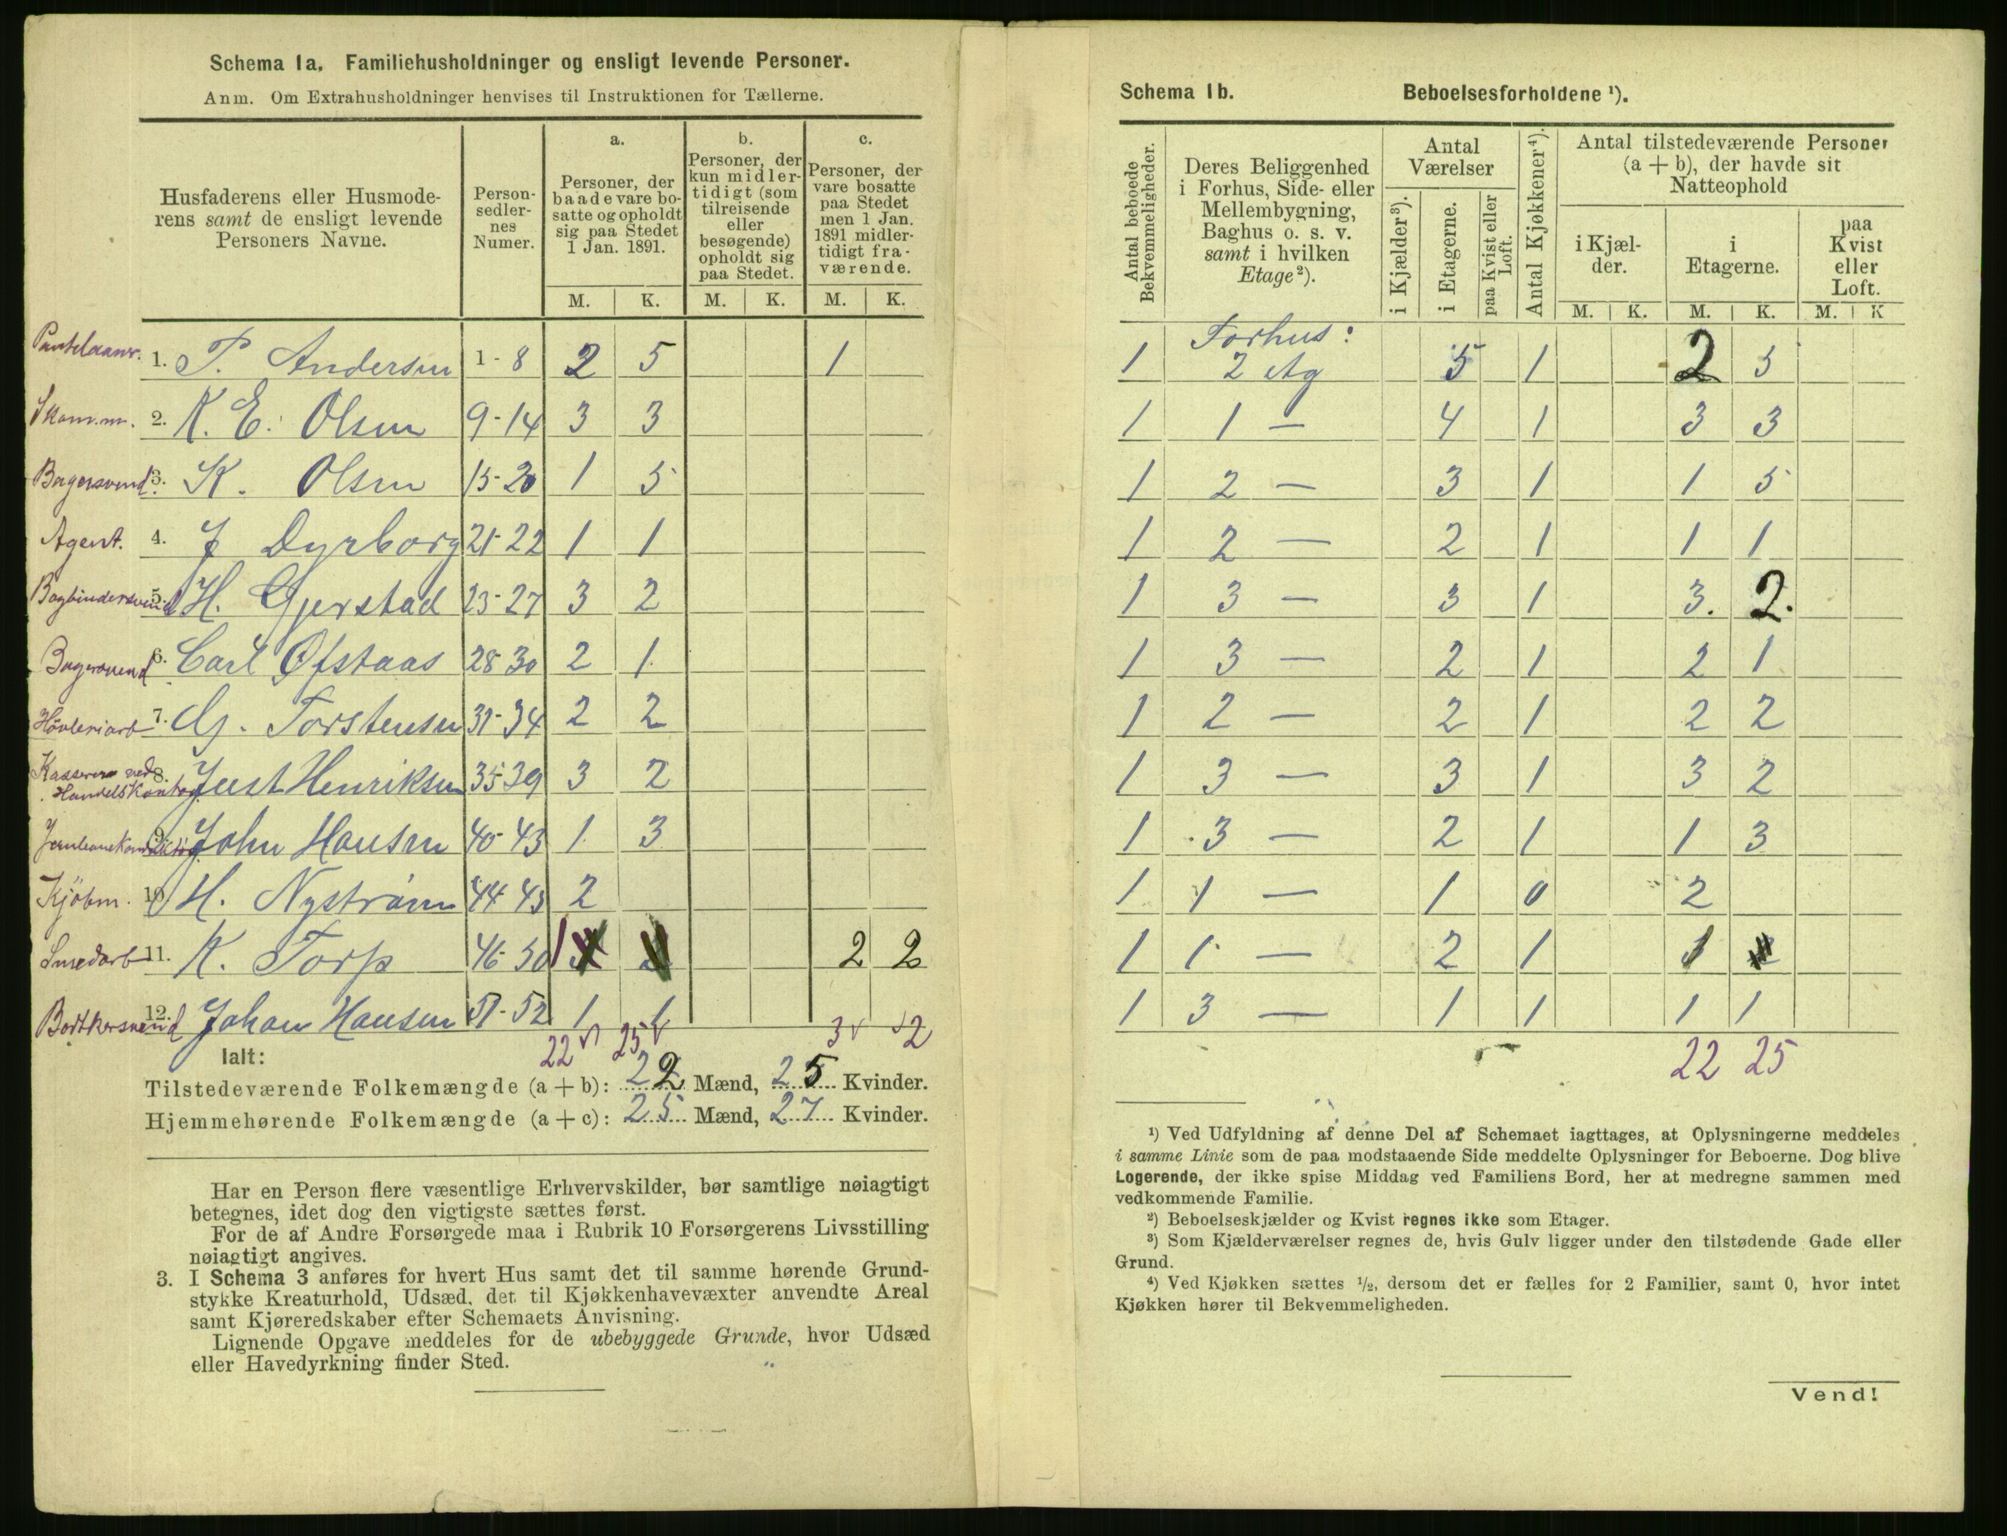 Schema 1a. Familiehusholdninger og ensligt levende Personer.
Anm. Om Extrahusholdninger henvises til Instruktionen for Tællerne.
Husfaderens eller Husmode-
rens samt de ensligt levende
Personers Navne.
Person-
sedler-
nes
Numer.
a.
Personer, der
baade vare bo-
satte og opholdt
sig paa Stedet
1 Jan. 1891.
b.
Personer, der
kun midler-
tidigt (som
tilreisende
eller
besøgende)
opholdt sig
paa Stedet.
c.
Personer, der
vare bosatte
paa Stedet
men 1 Jan.
1891 midler-
tidigt fra-
værende.
M. K. M. K. M. K.
1. P. Andersen 1-8 2 5 1
Skom.m. 2. K. E. Olsen 9-14 3 3
Bagersvend 3. K. Olsen 15-20 1 5
Agent. 4. J Dyrborg 21-22 1 1
Bogbindersvend 5. H. Gjerstad 23-27 3 2
Bagersvend 6. Carl Ofstaas 28-30 2 1
Høvleriarb 7. G. Torstensen 31-34 2 2
Kasserer ved
Handelskontor 8. Just Henriksen 35-39 3 2
9. John Hansen 40-43 1 3
Kjöbm. 10. H. Nystrøm 44-45 2
Smedarb 11. K. Torp 46-50 1 2 2
Bødkersvend 12. Johan Hansen 51-52 1 1
Ialt: 22 25 3 2
Tilstedeværende Folkemængde (a + b): 22 Mænd, 25 Kvinder.
Hjemmehørende Folkemængde (a + c): 25 Mænd, 27 Kvinder.
Har en Person flere væsentlige Erhvervskilder, bør samtlige nøiagtigt
betegnes, idet dog den vigtigste sættes først.
For de af Andre Forsørgede maa i Rubrik 10 Forsørgerens Livsstilling
nøiagtigt angives.
3. I Schema 3 anføres for hvert Hus samt det til samme hørende Grund-
stykke Kreaturhold, Udsæd, det til Kjøkkenhavevæxter anvendte Areal
samt Kjøreredskaber efter Schemaets Anvisning.
Lignende Opgave meddeles for de ubebyggede Grunde, hvor Udsæd
eller Havedyrkning finder Sted.
Schema 1b. Beboelsesforholdene ¹).
Antal beboede
Bekvemmeligheder.
Deres Beliggenhed
i Forhus, Side- eller
Mellembygning,
Baghus o. s. v.
samt i hvilken
Etage²).
Antal
Værelser
i Kjælder³).
i Etagerne.
paa Kvist eller
Loft.
Antal Kjøkkener⁴).
Antal tilstedeværende Personer
(a + b), der havde sit
Natteophold
i Kjæl-
der.
i
Etagerne.
paa
Kvist
eller
Loft.
M. K. M. K. M. K
Forhus:
1 2 Etg 5 1 2 5
1 1 — 4 1 3 3
1 2 — 3 1 1 5
1 2 — 2 1 1 1
1 3 — 3 1 3. 2.
1 3 — 2 1 2 1
1 2 — 2 1 2 2
1 3 — 3 1 3 2
1 3 — 2 1 1 3
1 1 — 1 0 2
1 1 — 2 1 1
1 3 — 1 1 1 1
22 25
¹) Ved Udfyldning af denne Del af Schemaet iagttages, at Oplysningerne meddeles
i samme Linie som de paa modstaaende Side meddelte Oplysninger for Beboerne. Dog blive
Logerende, der ikke spise Middag ved Familiens Bord, her at medregne sammen med
vedkommende Familie.
²) Beboelseskjælder og Kvist regnes ikke som Etager.
³) Som Kjælderværelser regnes de, hvis Gulv ligger under den tilstødende Gade eller
Grund.
⁴) Ved Kjøkken sættes ½, dersom det er fælles for 2 Familier, samt 0, hvor intet
Kjøkken hører til Bekvemmeligheden.
Vend!